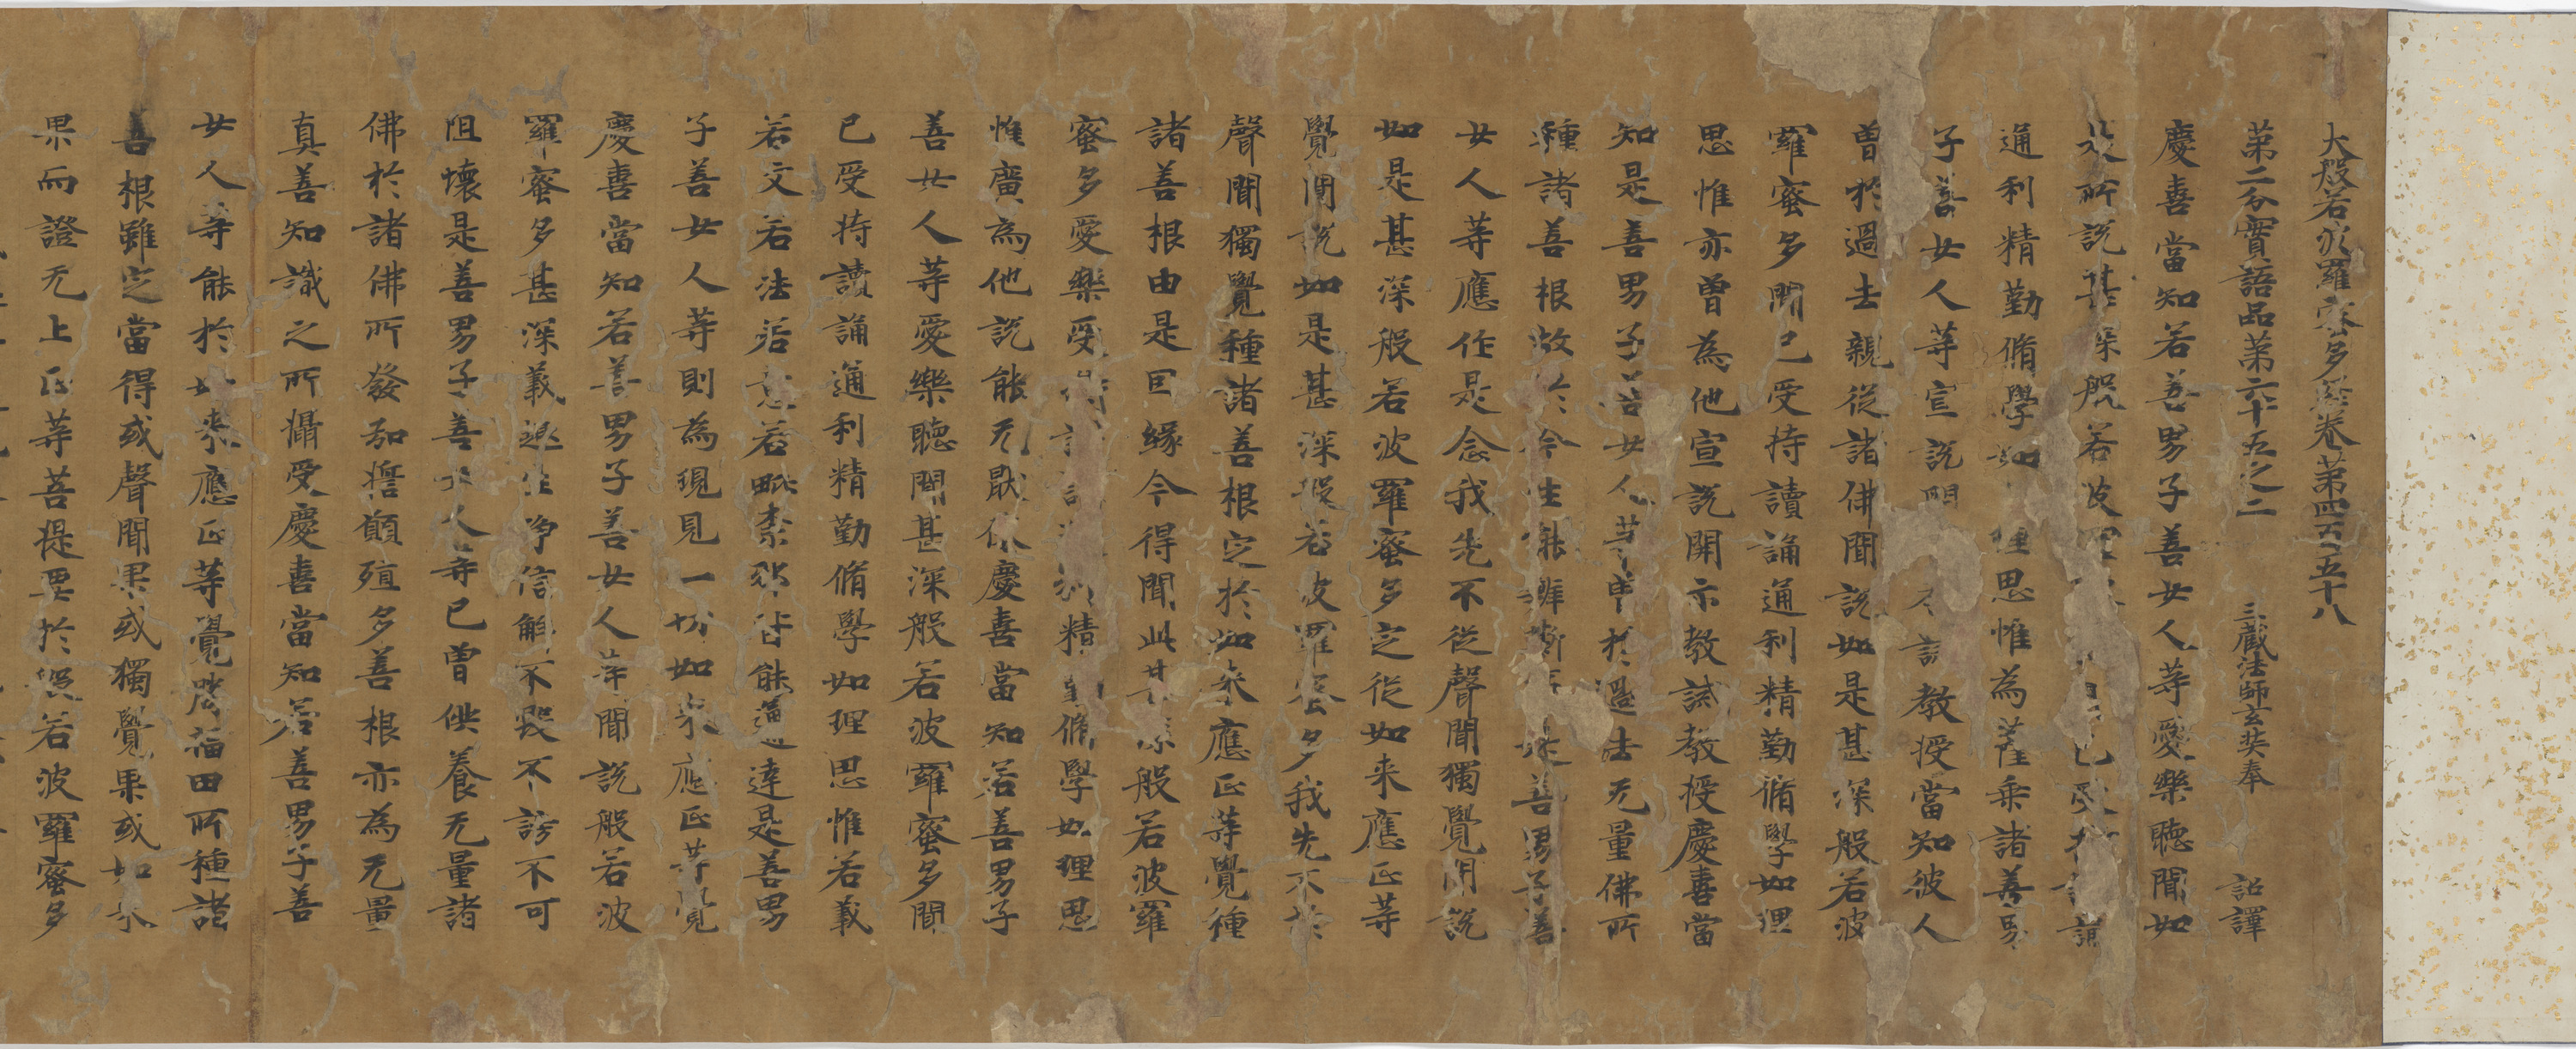 大般若波羅蜜多經卷第四百五十八
第二分實語品第六十五之二 三藏法師玄奘奉 詔譯
慶喜當知若善男子善女人等愛樂聽聞如
是所說甚深般若波羅 已受持讀誦
通利精勤脩學如 理思惟為菩薩乘諸善男
子善女人等宣說開 示誡教授當知彼人
曾於過去親從諸佛聞說如是甚深般若波
羅蜜多聞已受持讀誦通利精勤脩學如理
思惟亦曾為他宣說開示教誡教授慶喜當
知是善男子善女人等曾於過去无量佛所
種諸善根故於今生能辦斯事是善男子善
女人等應作是念我先不從聲聞獨覺聞說
如是甚深般若波羅蜜多定從如来應正等
覺聞說如是甚深般若波羅蜜多我先不於
聲聞獨覺種諸善根定於如来應正等覺種
諸善根由是因緣今得聞此甚深般若波羅
蜜多愛樂受持 精勤脩學如理思
惟廣為他說能无猒惓慶喜當知若善男子
善女人等愛樂聽聞甚深般若波羅蜜多聞
已受持讀誦通利精勤脩學如理思惟若義
若文若法若意若毗柰耶皆能通達是善男
子善女人等則為現見一切如来應正等覺
慶喜當知若善男子善女人等聞說般若波
羅蜜多甚深義趣生淨信解不毀不謗不可
阻懷是善男子善女人等已曾供養无量諸
佛於諸佛所發弘擔願殖多善根亦為无量
真善知識之所攝受慶喜當知若善男子善
女人等能於如来應正等覺勝福田所種諸
善根雖定當得或聲聞果或獨覺果或如来
果而證无上正等菩提要於般若波羅蜜多